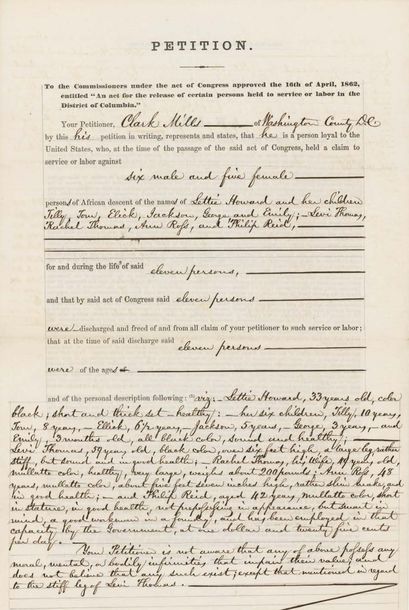 PETITION.
To the Commissioners under the act of Congress approved the 16th of April, 1862,
entitled "An act for the release of certain persons held to service or labor in the
District of Columbia."
Your Petitioner, Clark Mills of Washington County D.C.
by this his petition in writing, represents and states, that he is a person loyal to the
United States, who, at the time of the passage of the said act of Congress, held a claim to
service or labor against
six male and five female
persons of African descent of the names of Lettie Howard and her children
Tilly, Tom, Elick, Jackson, George and Emily; – Levi Thomas,
Rachel Thomas, Ann Ross, and Philip Reid,
for and during the life of said eleven persons,
and that by said act of Congress said eleven persons
were discharged and freed of and from all claim of your petitioner to such service or labor;
that at the time of said discharge said
eleven persons
were of the ages
and of the personal description following: viz; – Lettie Howard, 33 years old, color
black; short and thick set – healthy: – her six children, Tilly, 10 years,
Tom, 8 years, – Ellick, 6½ years, – Jackson, 5 years, – George, 3 years, – and
Emily, 3 months old, all black color, sound and healthy;
Levi Thomas, 59 years old, black color, over six feet high, a large leg rather
stiff, but sound and in good health; – Rachel Thomas, his wife, years old,
mullatto color, healthy, very large, weighs about 200 pounds; Ann Ross 48
years, mullatto color, about five feet seven inches high, rather slim make, and
in good health; – and Philip Reid, aged 42 years, mullatto color, short
in stature, in good health, not prepossessing in appearance, but smart in
mind, a good workman in a foundry, and has been employed in that
capacity by the Government, at one dollar and twenty five cents
per day.
Your Petitioner is not aware that any of above possess any
moral, mental, or bodily infirmities that impair their value, and
does not believe that any such exist; except that mentioned in regard
to the stiff leg of Levi Thomas.